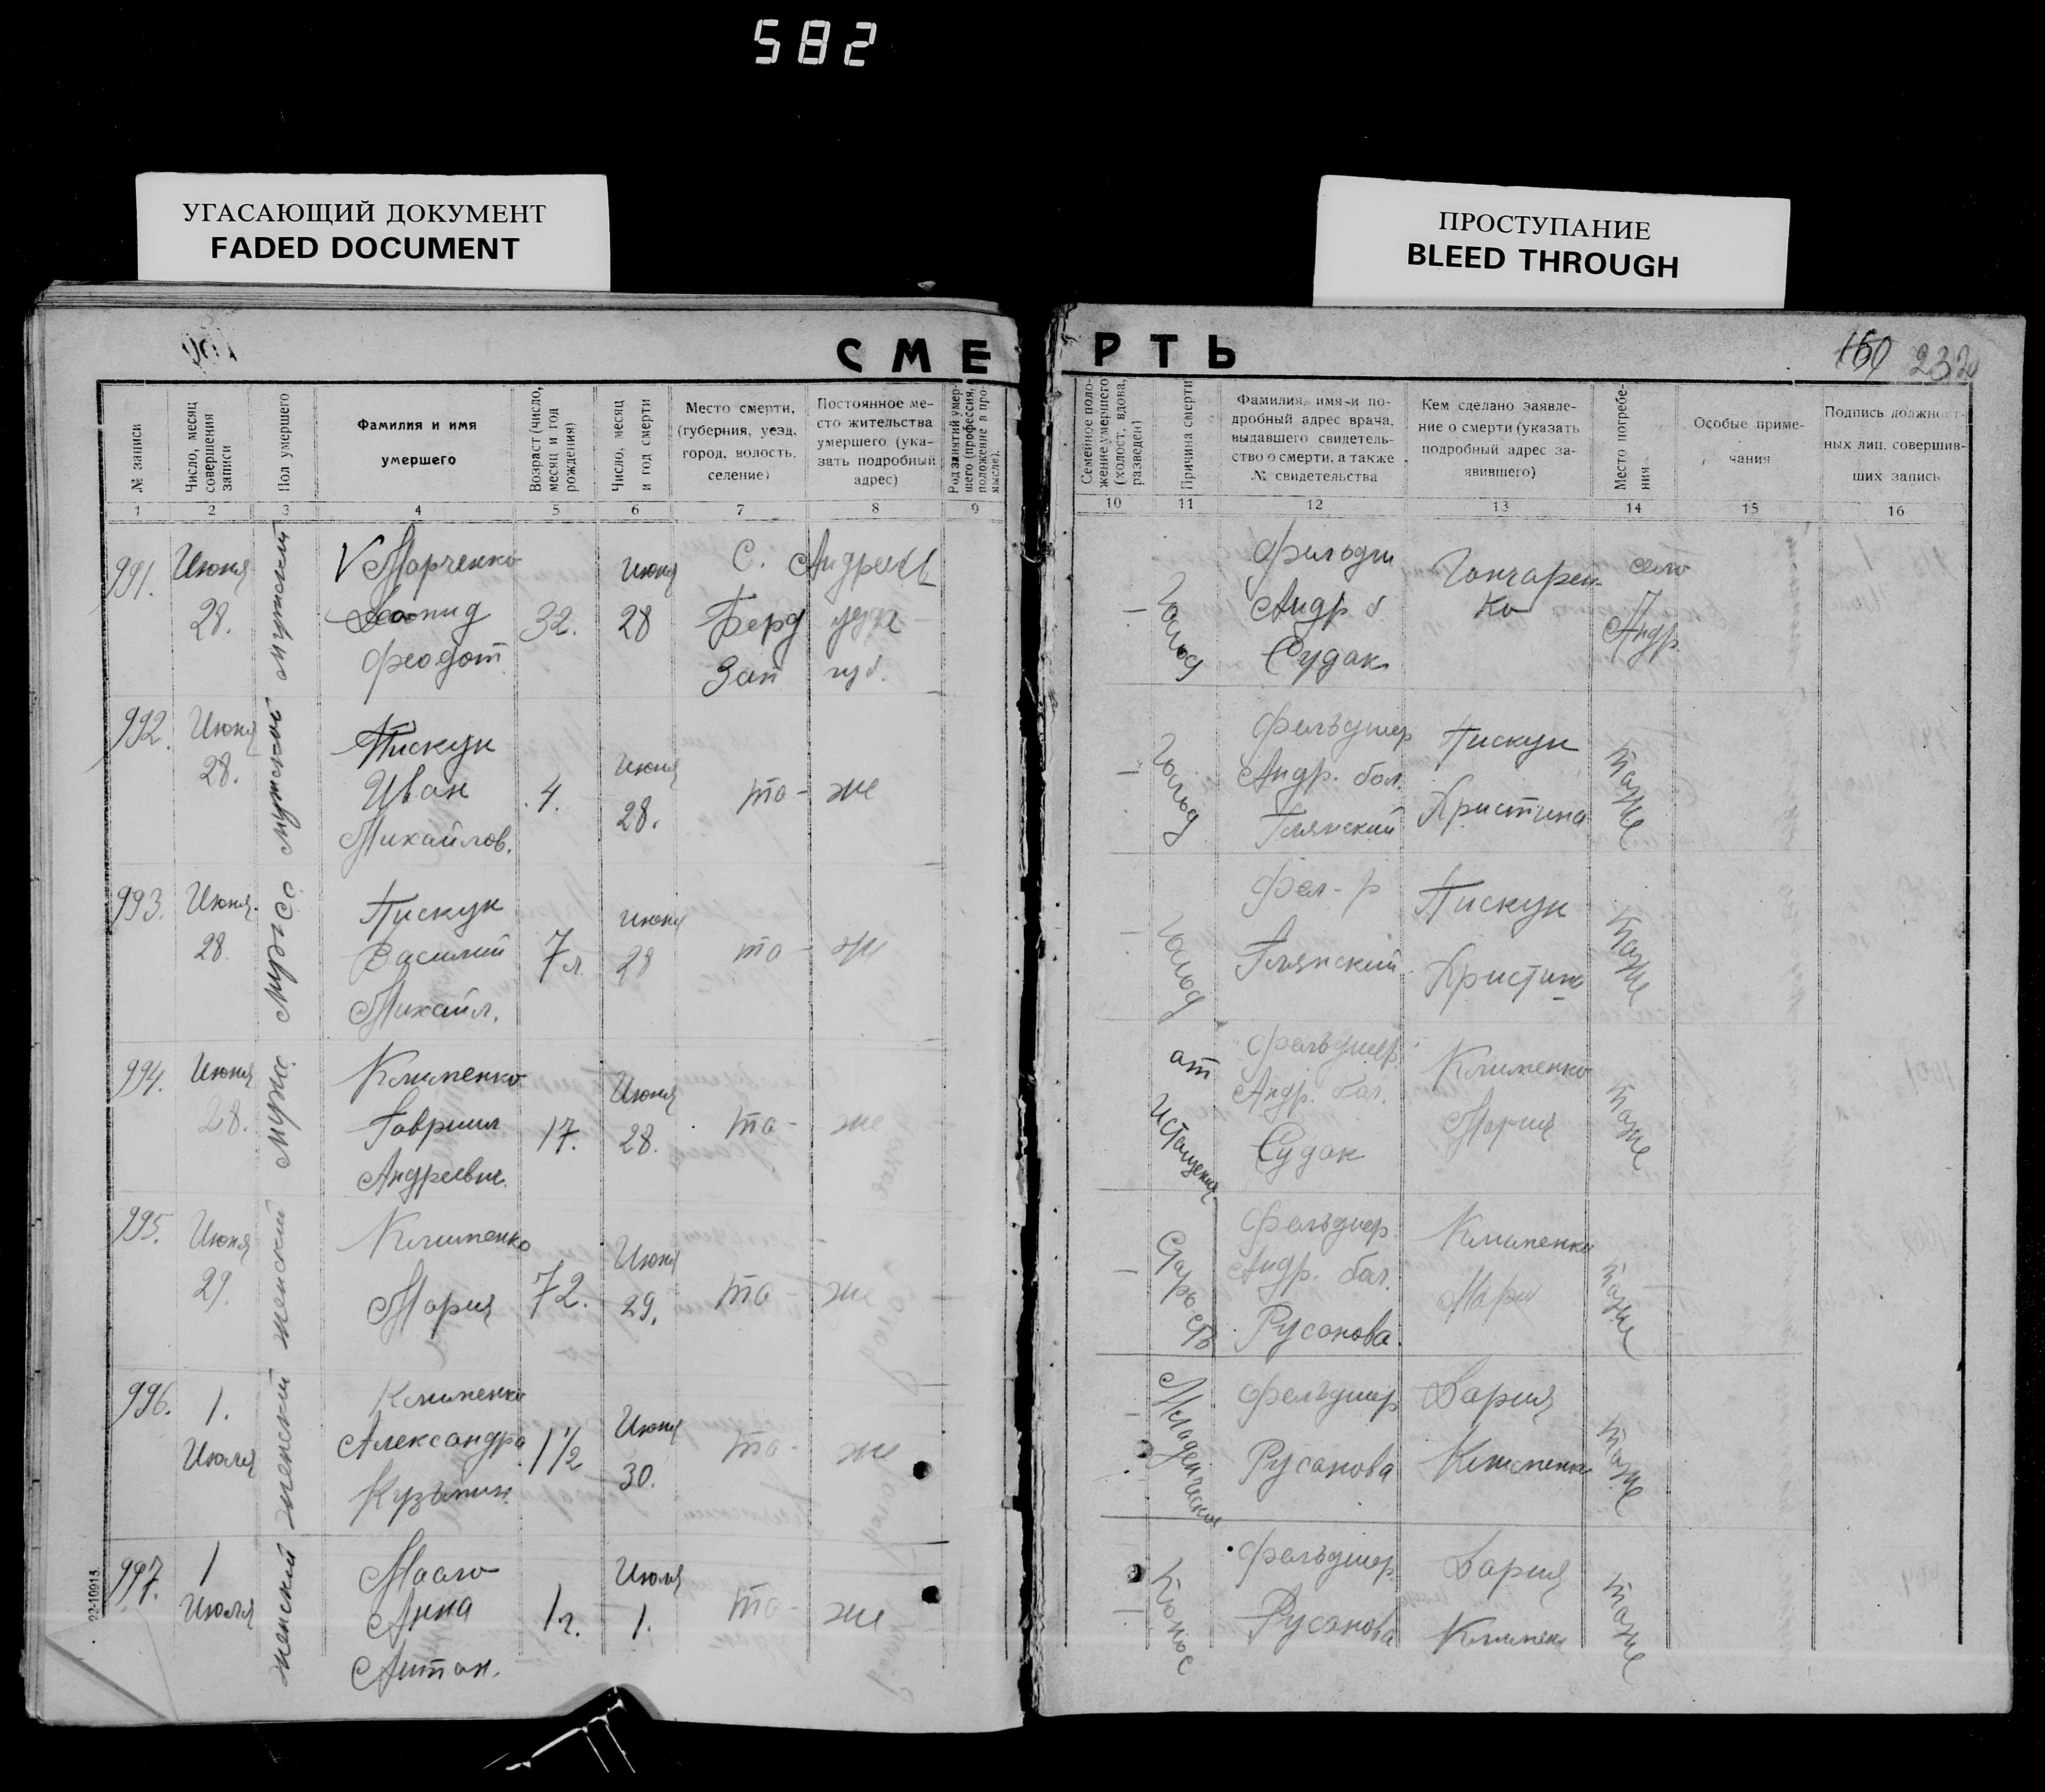 582
УГАСАЮЩИЙ ДОКУМЕНТ
FADED DOCUMENT
ПРОСТУПАНИЕ
BLEED THROUGH
СМЕРТЬ
160 232
№ записи
Число, месяц совершения записи
Пол умершего
Фамилия и имя умершего
Возраст (число, месяц и год рождения)
Число, месяц и год смерти
Место смерти, (губерния, уезд, город, волость, селение)
Постоянное место жительства умершего (указать подробный адрес)
Род занятий умершего (профессия, положение в промысле).
Семейное положение умершего (холост, вдова, разведен)
Причина смерти
Фамилия, имя и подробный адрес врача, выдавшего свидетельство о смерти, а также № свидетельства
Кем сделано заявление о смерти (указать подробный адрес заявившего)
Место погребения
Особые примечания
Подпись должностных лиц, совершивших запись
1 2 3 4 5 6 7 8 9 10 11 12 13 14 15 16
991. Июня 28. мужской
V Марченко
Леонид
Феодот.
32.
Июня 28
С. Андреевк
Берд уезда
Зап губ.
– Голод
Фельдш
Андр б
Судак
Гончарен-
ко
село
Андр.
992. Июня 28. мужской
Пискун
Иван
Михайлов.
4.
Июня 28.
то - же
– Голод
Фельдшер
Андр. бол.
Глянский
Пискун
Христина
тоже
993. Июня 28. мужс
Пискун
Василий
Михайл.
7 л
июня 28
то - же
– Голод
Фел-р
Глянский
Пискун
Христин
тоже
994. Июня 28. мужс.
Клименко
Гавриил
Андреевич.
17.
Июня 28.
то - же
от истощения
Фельдшер
Андр. бол.
Судак
Клименко
Мария
тоже
995. Июня 29. женский
Клименко
Мария
72.
Июня 29.
то - же
– Старость
Фельдшер
Андр. бол.
Русанова.
Клименко
Мари
тоже
996. 1. Июля женский
Клименко
Александра
Кузьмин.
1 1/2
Июня 30.
то - же
– Младенческая
Фельдшер
Русанова
Дария
Клименко
тоже
997. 1 Июля женский
Анна
Антон.
1 г.
Июля 1.
то - же
– Понос
Фельдшер
Русанова
Дария
Климен
тоже
22-10913.